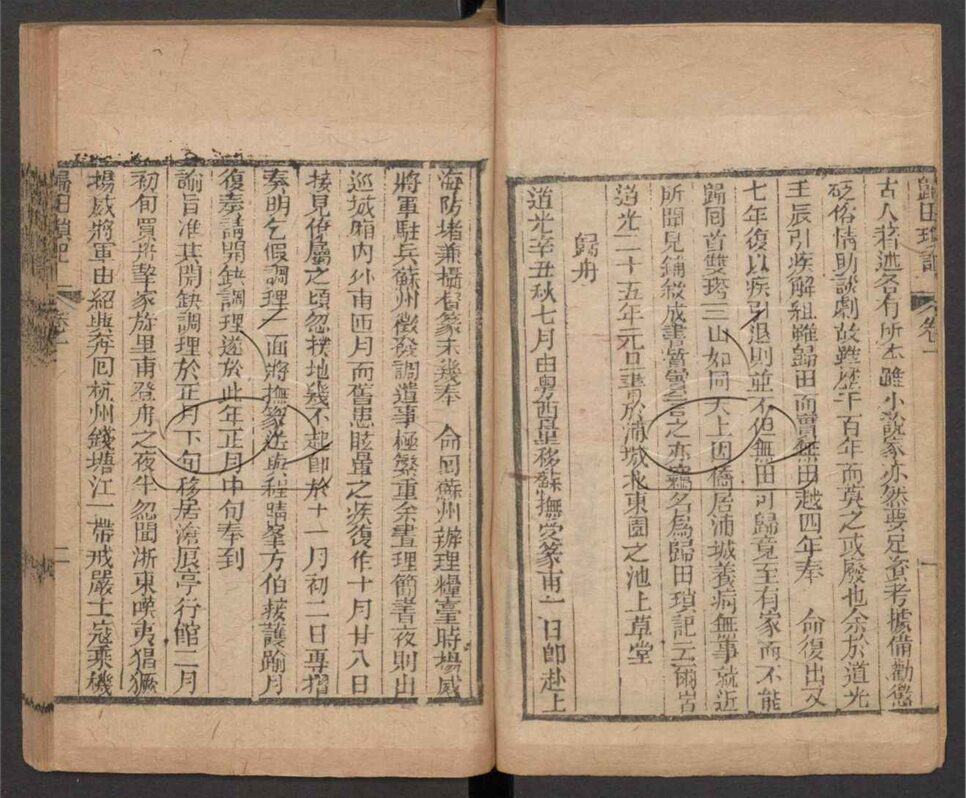 歸田瑣記 卷一 一
古人著述各有所本雖小說家亦然要足資考據備勸懲
砭俗情助談劇故雖歷千百年而莫之或廢也余於道光
壬辰引疾解組雖歸田而實無田越四年奉 命復出又
七年復以疾引退則並不但無田可歸竟至有家而不能
歸回首雙塔三山如同天上因僑居浦城養病無事就近
所聞見鋪敘成書質實言之亦竊名為歸田瑣記云爾
道光二十五年元旦書於浦城北東園之池上草堂
歸舟
道光辛丑秋七月由粵西量移蘇撫受篆甫一日即赴上
海防堵兼攝督篆未幾奉 命回蘇州辦理糧臺時揚威
將軍駐兵蘇州徵發調遣事極繁重余晝理簡書夜則出
巡城廂內外甫匝月而舊患眩暈之疾復作十月廿八日
接見僚屬之頃忽撲地幾不起即於十一月初二日專摺
奏明乞假調理一面將撫篆送與程晴峯方伯兼護踰月
復奏請開缺調理遂於此年正月中旬奉到
諭旨准其開缺調理於正月下旬移居滄浪亭行館二月
初旬買舟挈家旋里甫登舟之夜半忽聞浙東𠸄夷猖獗
揚威將軍由紹興奔回杭州錢塘江一帶戒嚴土寇乘機
歸田瑣記 卷一 二